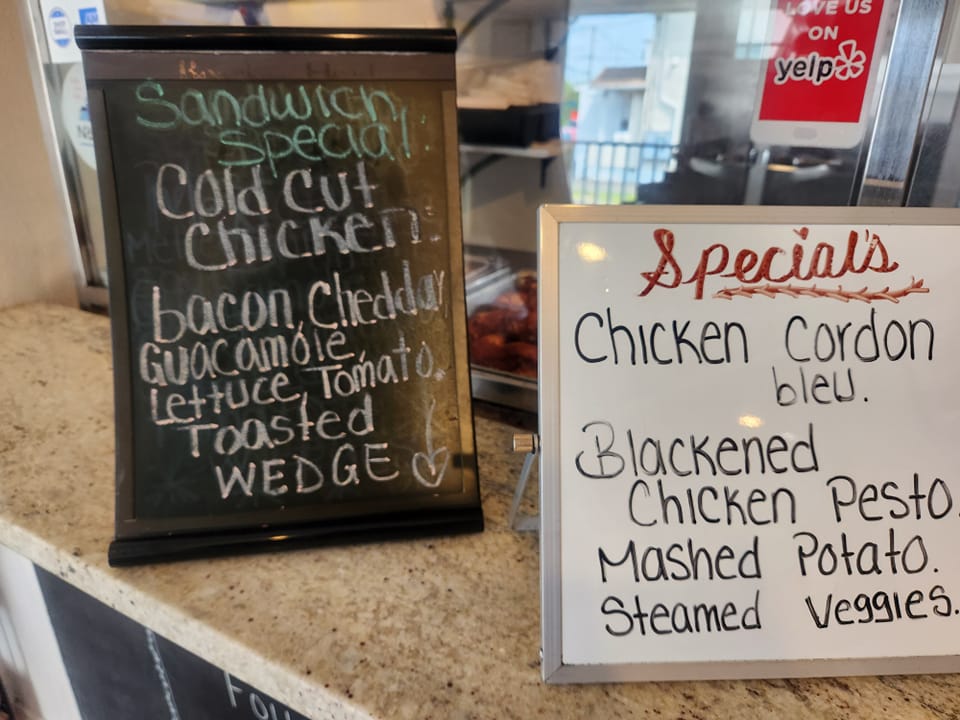 Sandwich
Special.
Cold cut
chicken.
bacon, Cheddar
Guacamole,
Lettuce, Tomato.
Toasted
WEDGE
LOVE US
ON
yelp
Special's
Chicken Cordon
bleu.
Blackened
Chicken Pesto.
Mashed Potato.
Steamed Veggies.